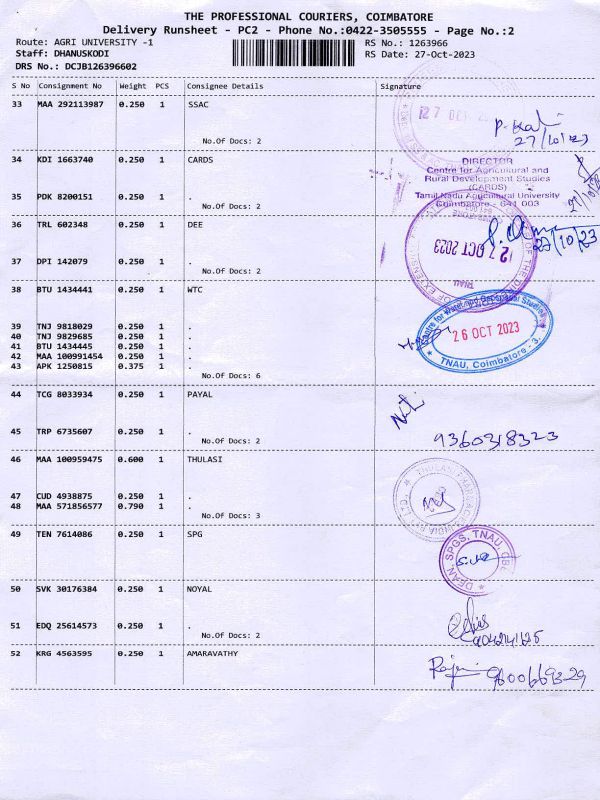 THE PROFESSIONAL COURIERS, COIMBATORE
Delivery Runsheet - PC2 - Phone No.:0422-3505555 - Page No.:2
Route: AGRI UNIVERSITY -1 RS No.: 1263966
Staff: DHANUSKODI RS Date: 27-Oct-2023
DRS No.: DCJB126396602
S No Consignment No Weight PCS Consignee Details Signature
33 MAA 292113987 0.250 1 SSAC
27 OCT
27/10/23
No.Of Docs: 2
34 KDI 1663740 0.250 1 CARDS
DIRECTOR
Centre for Agricultural and
Rural Development Studies
(CARDS)
Tamil Nadu Agricultural University
Coimbatore - 641 003
35 PDK 8200151 0.250 1 .
No.Of Docs: 2
36 TRL 602348 0.250 1 DEE
27/10/23
27 OCT 2023
37 DPI 142079 0.250 1 .
No.Of Docs: 2
38 BTU 1434441 0.250 1 WTC
26 OCT 2023
TNAU, Coimbatore - 3.
39 TNJ 9818029 0.250 1 .
40 TNJ 9829685 0.250 1 .
41 BTU 1434445 0.250 1 .
42 MAA 100991454 0.250 1 .
43 APK 1250815 0.375 1 .
No.Of Docs: 6
44 TCG 8033934 0.250 1 PAYAL
45 TRP 6735607 0.250 1 .
9360318323
No.Of Docs: 2
46 MAA 100959475 0.600 1 THULASI
47 CUD 4938875 0.250 1 .
48 MAA 571856577 0.790 1 .
No.Of Docs: 3
49 TEN 7614086 0.250 1 SPG
DEAN, SPGS, TNAU, CBE
50 SVK 30176384 0.250 1 NOYAL
51 EDQ 25614573 0.250 1 .
No.Of Docs: 2
52 KRG 4563595 0.250 1 AMARAVATHY